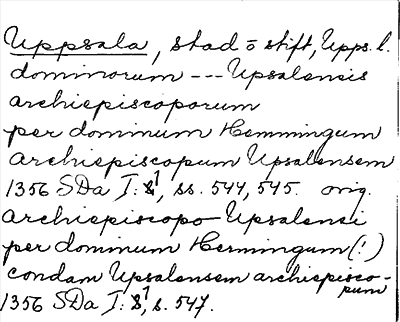 Uppsala, stad o stift, Upps. l.
dominorum --- Upsalensis
archiepiscoporum
per dominum Hemmingum
archiepiscopum Upsalensem
1356 SDa I: 1, ss. 544, 545. orig.
archiepiscopo Upsalensi
per dominum Hermingum (!)
condam Upsalensem archiepisco-
pum
1356 SDa I: 1, s. 547.